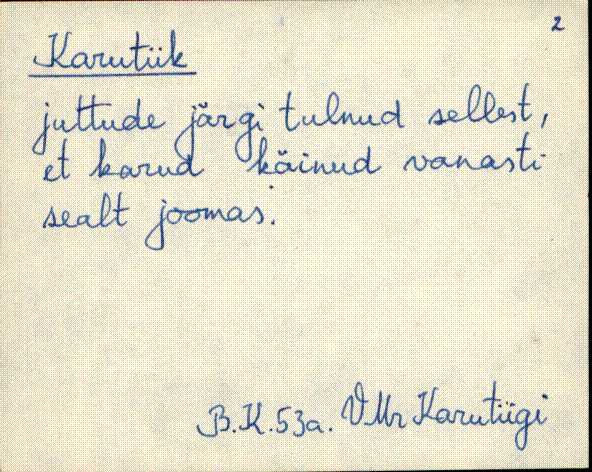 2
Karutiik
juttude järgi tulnud sellest,
et karud käinud vanasti
sealt joomas.
B.K. 53a. VMr Karutiigi